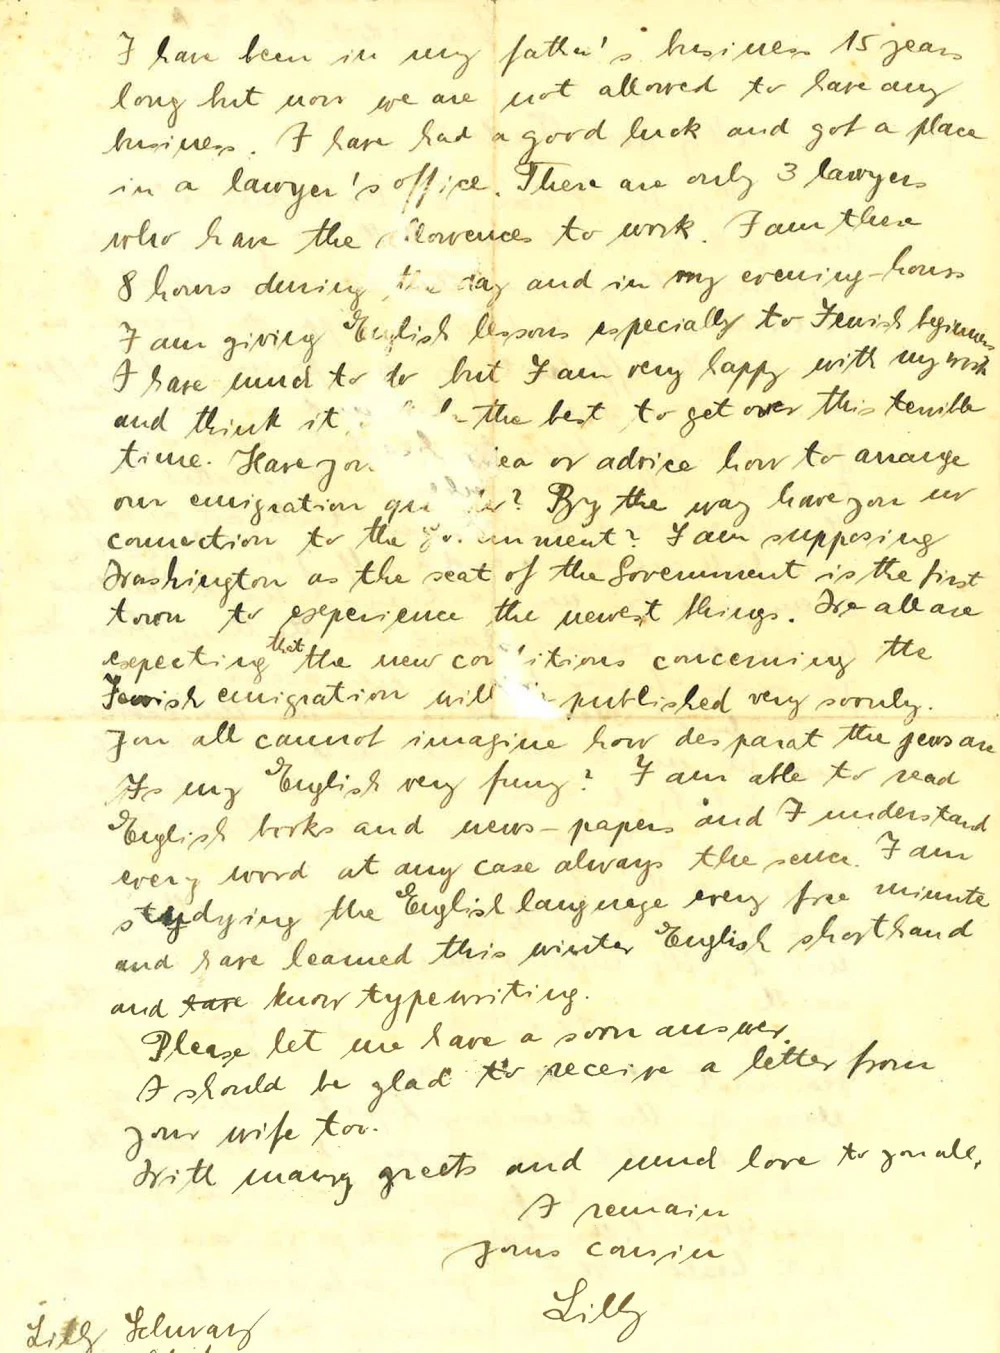 I have been in my father's business 15 years
long but now we are not allowed to have any
business. I have had a good luck and got a place
in a lawyer's office. There are only 3 lawyers
who have the allowences to work. I am there
8 hours during the day and in my evening-hours
I am giving English lessons especially to Jewish beginners
I have much to do but I am very happy with my work
and think it the best to get over this terrible
time. Have you or advice how to arrange
our emigration? By the way have you no
connection to the Government? I am supposing
Washington as the seat of the Government is the first
town to experience the newest things. We all are
expecting that the new conditions concerning the
Jewish emigration will be published very soonly.
You all cannot imagine how desparat the jews are
Is my English very funy? I am able to read
English books and news-papers and I understand
every word at any case always the sence. I am
studying the English language every free minute
and have learned this winter English shorthand
and have know typewriting.
Please let me have a soon answer.
I should be glad to receive a letter from
your wife too.
With many greets and much love to you all,
I remain
yours cousin
Lilly
Lilly Schwarz